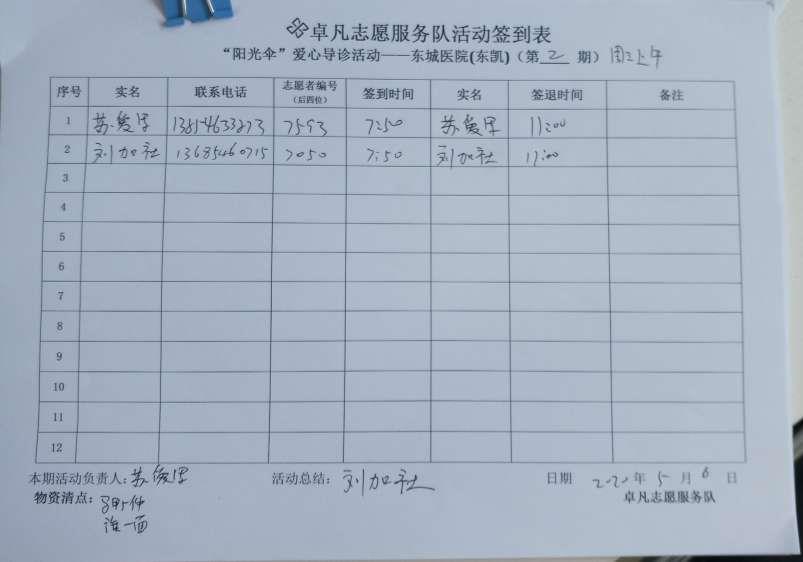 卓凡志愿服务队活动签到表
“阳光伞”爱心导诊活动——东城医院(东凯)(第 2 期) 周三上午
序号 实名 联系电话 志愿者编号(后四位) 签到时间 实名 签退时间 备注
1 苏爱 7593 7:50 苏爱 11:00
2 刘加社 13685460715 7050 7:50 刘加社 11:00
3
4
5
6
7
8
9
10
11
12
本期活动负责人: 苏爱 活动总结: 刘加社 日期 2020 年 5 月 6 日
物资清点: 卓凡志愿服务队
一面